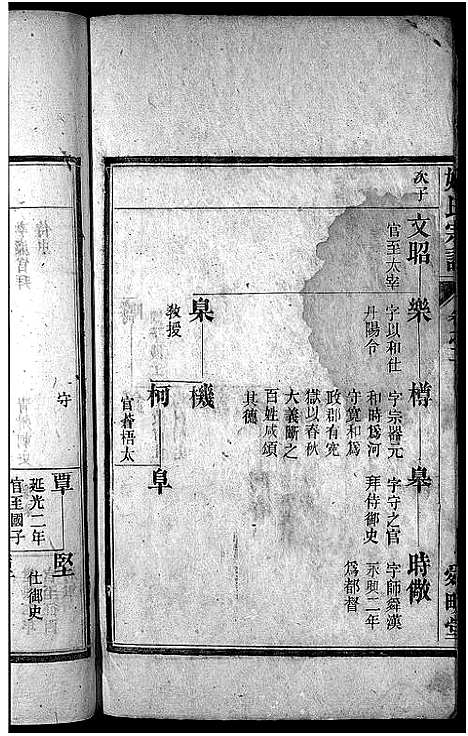 姚氏宗譜
舜畊堂
次子
文昭
官至太宰
樂
字以和仕
丹陽令
樽
字宗器元
和時爲河
守寬和爲
政郡有冤
獄以春秋
大義斷之
百姓咸頌
其德
皋
字守之官
拜侍御史
時儆
字師舜漢
永興二年
爲都督
臬
教授
機
柯
官蒼梧太
阜
守
覃
延光二年
官至國子
堅
仕御史